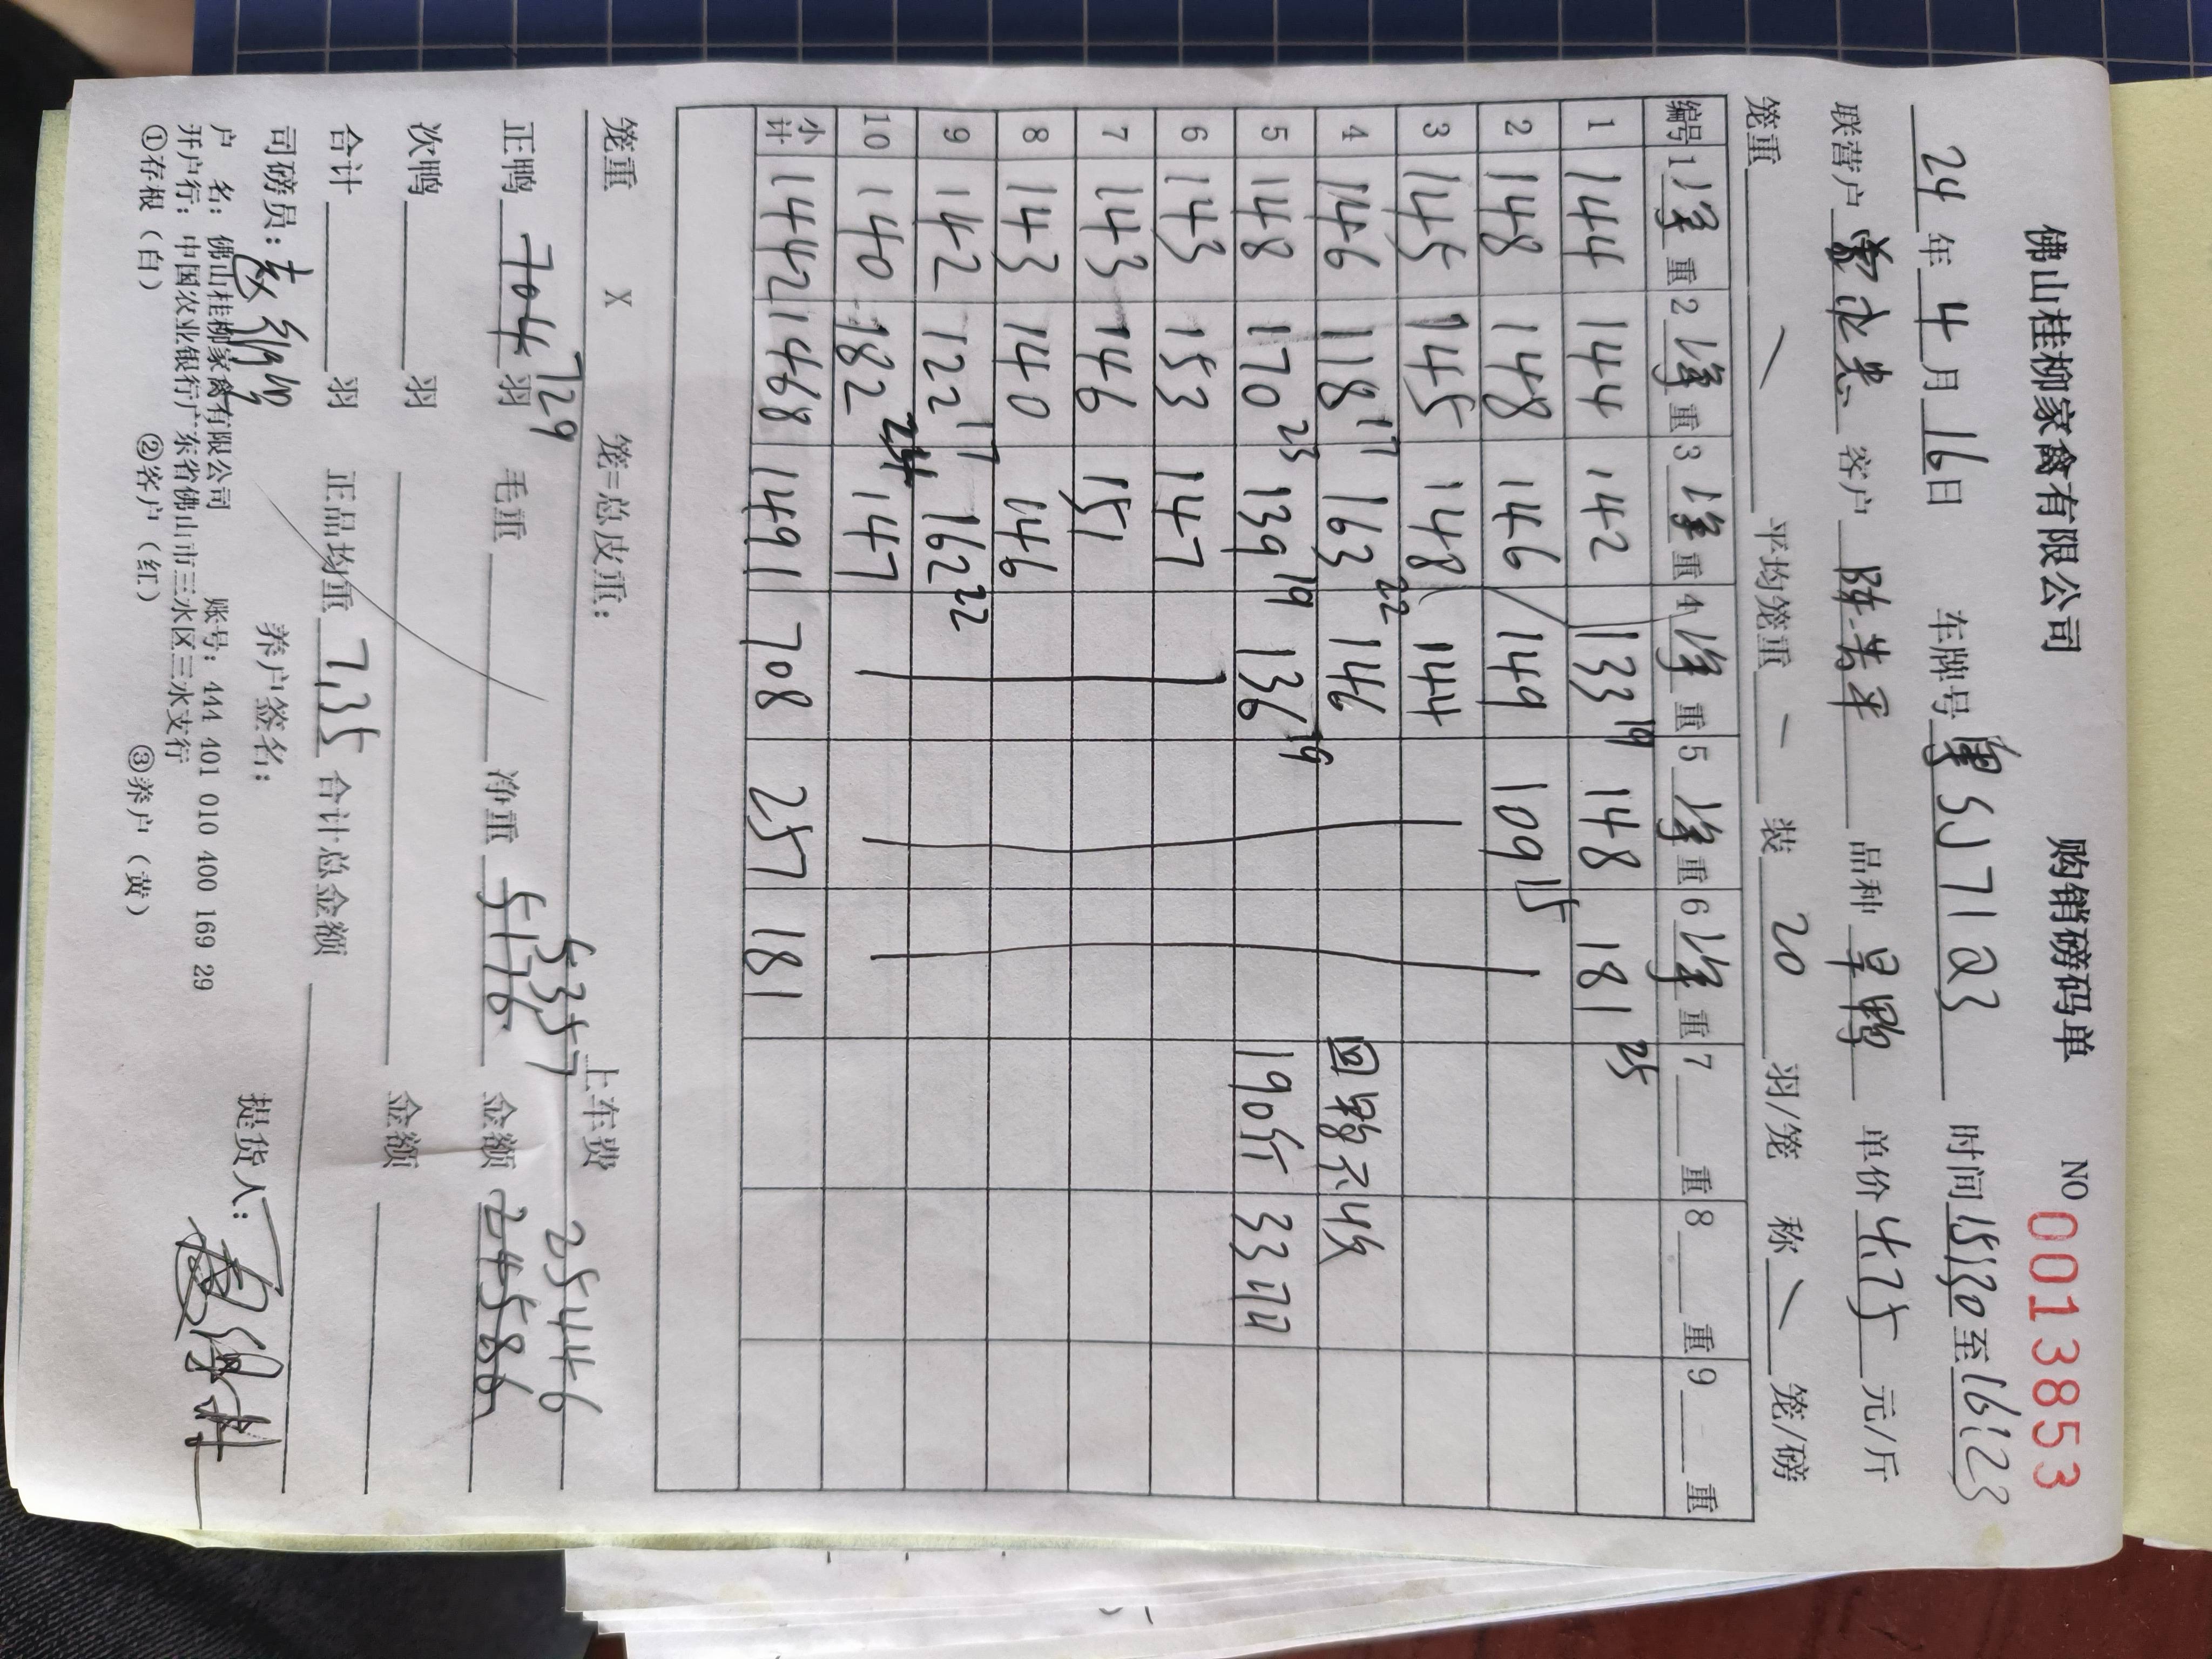 佛山桂柳家禽有限公司 购销磅码单 NO 0013853
24年4月16日 车牌号 粤SJ71Q3 时间15:30至16:23
联营户 客户 陈 平 品种 旱鸭 单价 4.75 元/斤
笼重 / 平均笼重 一 装 20 羽/笼 称 笼/磅
编号 1净重 2净重 3净重 4净重 5净重 6净重 7 重 8 重 9 重
1 144 144 142 133 19 148 181 25
2 148 148 146 149 109 15
3 145 145 148 144
4 146 118 17 163 22 146 回 不收
5 148 170 23 139 19 136 19 190斤 33只
6 143 153 147
7 143 146 151
8 143 140 146
9 142 122 17 162 22
10 140 182 24 147
小计 1442 1468 1491 708 257 181
笼重 X 笼=总皮重: 上车费
729 5357 25446
正鸭 704 羽 毛重 净重 5176 金额 24586
次鸭 羽 金额
合计 羽 正品均重 7.35 合计总金额
司磅员: 养户签名: 提货人:
户 名: 佛山桂柳家禽有限公司 账号: 444 401 010 400 169 29
开户行: 中国农业银行广东省佛山市三水区三水支行
①存根（白） ②客户（红） ③养户（黄）